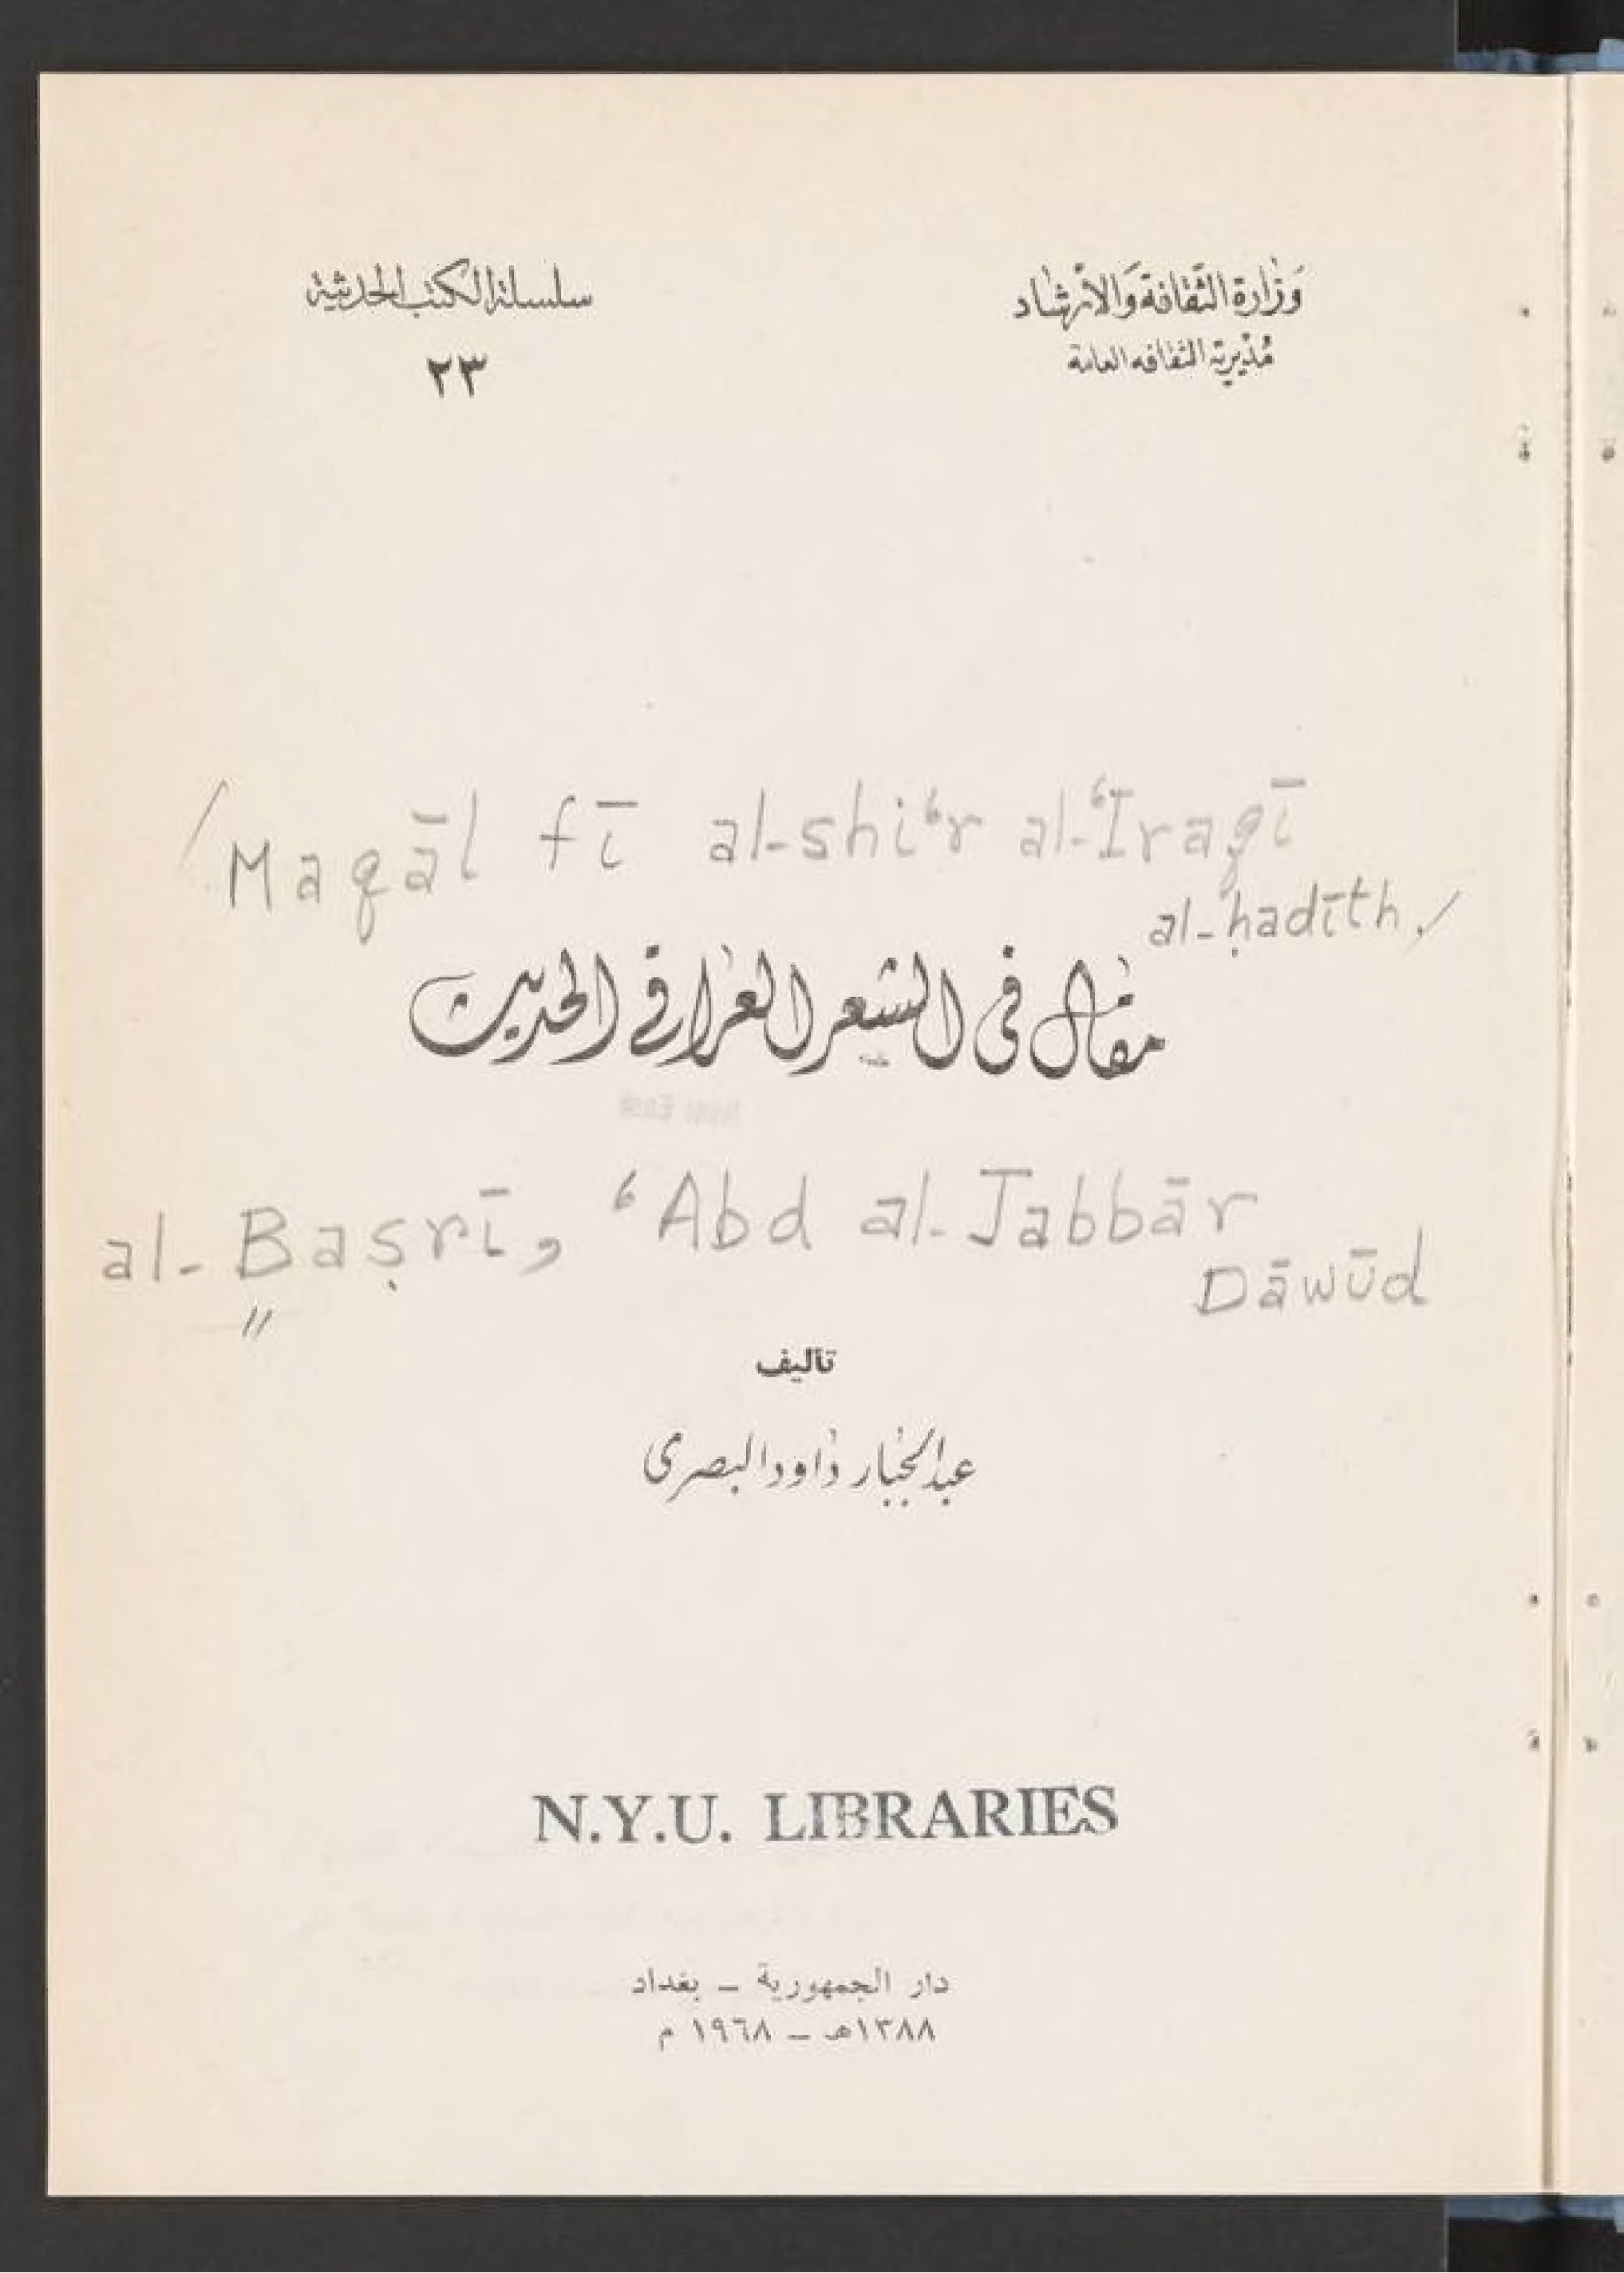 وزارة الثقافة والارشاد
مديرية الثقافة العامة
سلسلة الكتب الحديثة
٢٣
/Maqāl fī al-shiʿr al-ʿIraqī
al-ḥadīth./
مقال في الشعر العراقي الحديث
Near East
al-Baṣrī, ʿAbd al-Jabbār
Dāwūd
تأليف
عبد الجبار داود البصري
N.Y.U. LIBRARIES
دار الجمهورية – بغداد
١٣٨٨هـ – ١٩٦٨ م